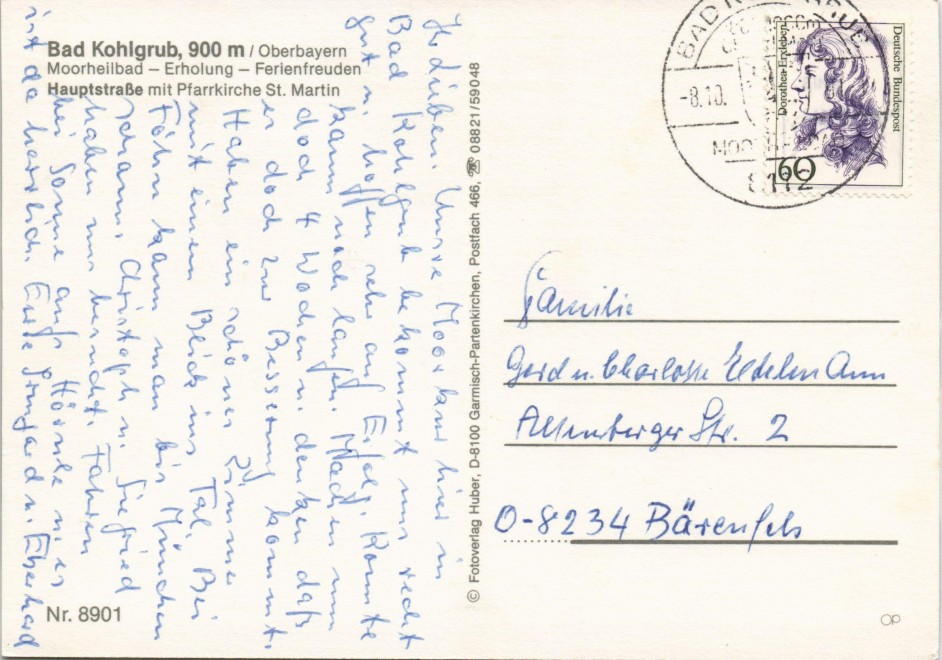 Bad Kohlgrub, 900 m / Oberbayern
Moorheilbad – Erholung – Ferienfreuden
Hauptstraße mit Pfarrkirche St. Martin
Ihr Lieben. Unsre Moorbad hier in
Bad Kohlgrub bekommt uns recht
gut u. hoffen sehr auf Erfolg. Konnte
kaum noch laufen. Machen nun
doch 4 Wochen u. denken daß
es doch zur Besserung kommt.
Haben ein schönes Zimmer
mit einem Blick ins Tal. Bei
Föhn kann man bis München
schaun. Christoph u. Siegfried
haben uns besucht. Fahren
bei Sonne aufs Hörnle u. es
ist da herrlich. Eure Irmgard u. Eberhard
Nr. 8901
© Fotoverlag Huber, D-8100 Garmisch-Partenkirchen, Postfach 466, ☏ 08821/59048
BAD KOHLGRUB
-8.10.
8112
Dorothea Erxleben
Deutsche Bundespost
60
Familie
Gerd u. Charlotte Edelmann
Altenberger Str. 2
O-8234 Bärenfels